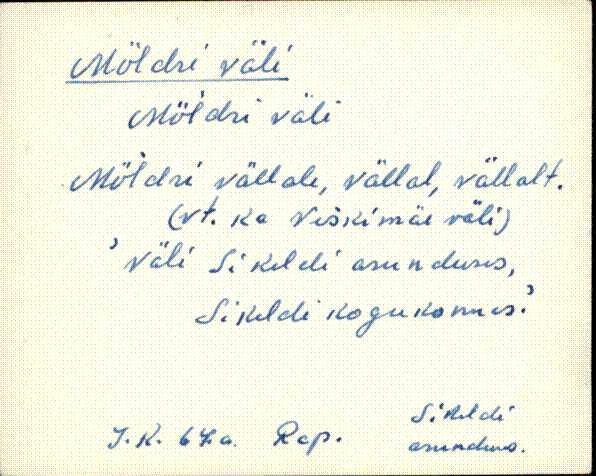 Möldri väli
Möl'dri väli
Möl'dri vällale, vällal, vällalt.
(vt. ka Veskimäe väli)
'väli Sikeldi asunduses,
Sikeldi kogukonnas.'
Sikeldi
J.K. Rap. asundus.